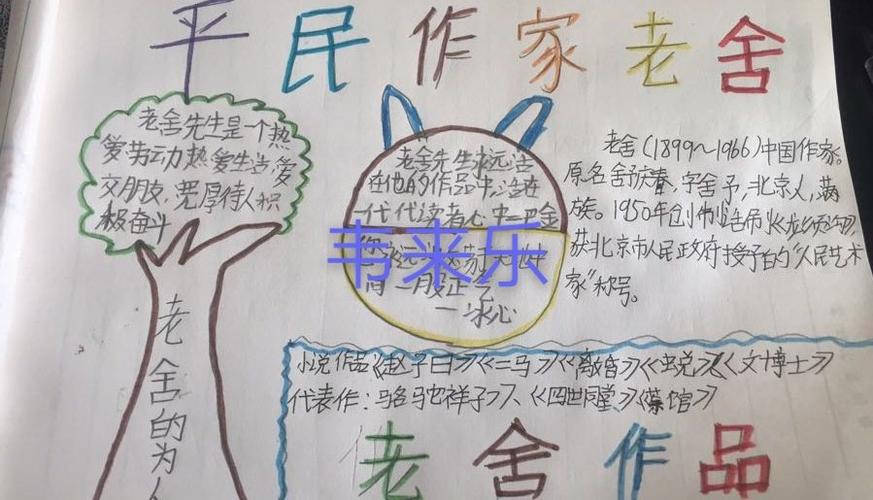 平民作家老舍
老舍先生是一个热
爱劳动热爱生活,爱
交朋友,宽厚待人积
极奋斗
老舍的为人
老舍先生永远活
在他的作品中,活在
一代代读者心中一巴金
您永远
间一股正气
一冰心
韦来乐
老舍(1899~1966)中国作家。
原名舒庆春,字舍予,北京人,满
族。1950年创作话剧《龙须沟》,
获北京市人民政府授予的“人民艺术
家”称号。
小说作品《赵子曰》《二马》《离婚》《蜕》《文博士》
代表作:骆驼祥子》、《四世同堂》《茶馆》
老舍作品